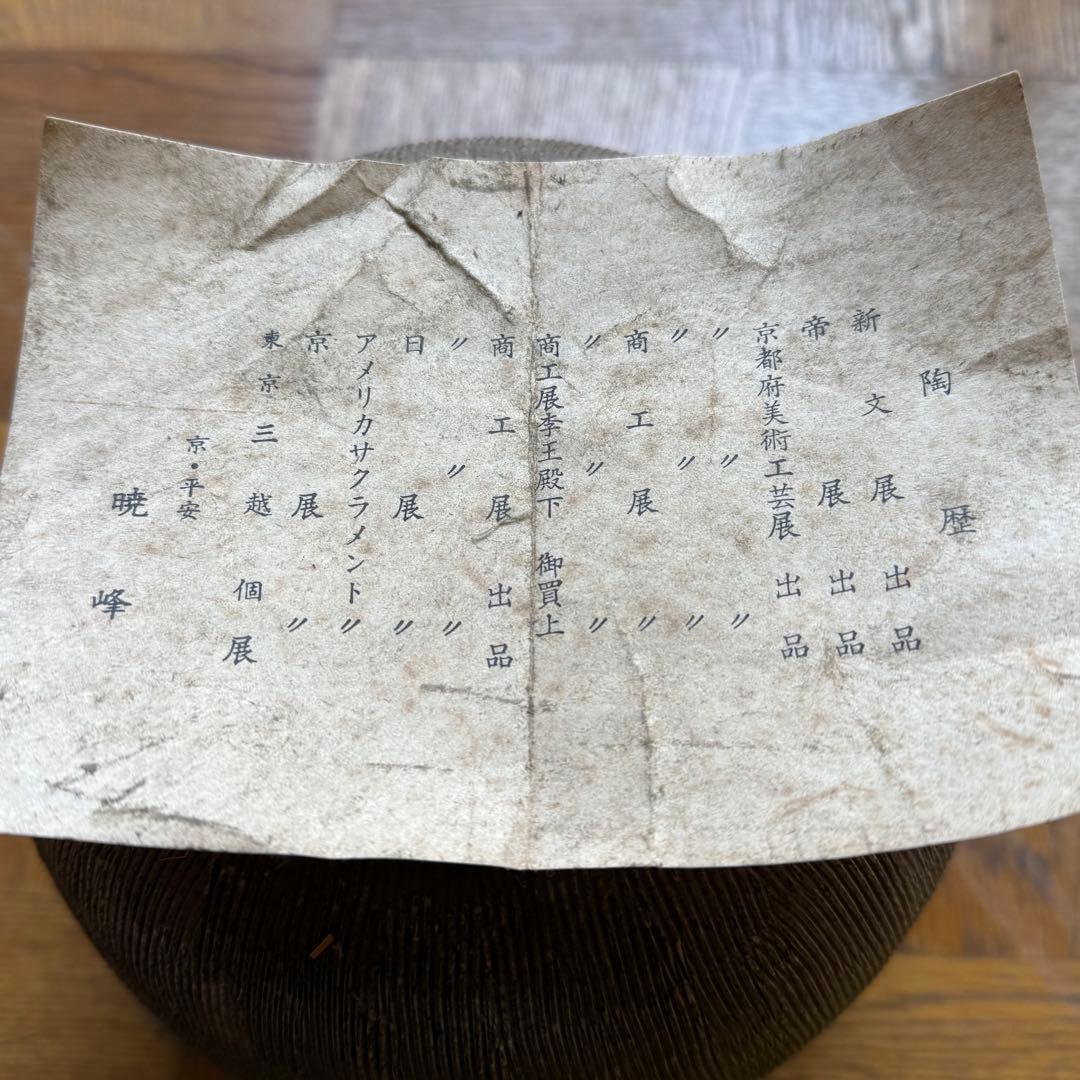 陶歴
新文展出品
帝展出品
京都府美術工芸展出品
〃 〃 〃
〃 〃 〃
商工展 〃
〃 〃 〃
商工展李王殿下 御買上
商工展出品
〃 〃 〃
日展 〃
アメリカサクラメント 〃
京展 〃
東京三越個展
京・平安
暁峰